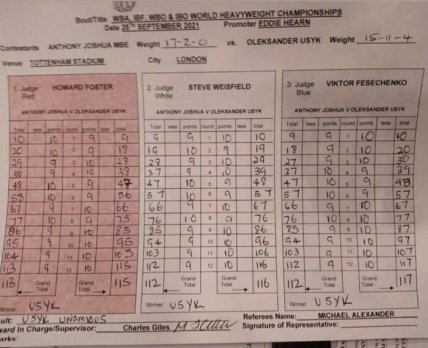 Bout/Title WBA, IBF, WBO & IBO WORLD HEAVYWEIGHT CHAMPIONSHIPS
Date 25TH SEPTEMBER 2021 Promoter EDDIE HEARN
Contestants ANTHONY JOSHUA MBE Weight 17-2-0 vs. OLEKSANDER USYK Weight 15-11-4
Venue TOTTENHAM STADIUM City LONDON
1. Judge Red HOWARD FOSTER
ANTHONY JOSHUA V OLEKSANDER USYK
Total less points round points less total
10 10 1 9 9
20 10 2 9 18
29 9 3 10 28
38 9 4 10 38
48 10 5 9 47
58 10 6 9 56
67 9 7 10 66
77 10 8 9 75
86 9 9 10
95 9 10 10 95
104 9 11 10 105
113 9 12 10 115
113 Grand Total 115
Winner USYK
2. Judge White STEVE WEISFIELD
ANTHONY JOSHUA V OLEKSANDER USYK
Total less points round points less total
9 9 1 10 10
19 10 2 9 19
28 9 3 10 29
37 9 4 10 39
47 10 5 9 48
57 10 6 9 57
66 9 7 10 67
76 10 8 9 76
85 9 9 10 86
94 9 10 10 96
103 9 11 10 106
112 9 12 10 116
112 Grand Total 116
Winner: USYK
3. Judge Blue VIKTOR FESECHENKO
ANTHONY JOSHUA V OLEKSANDER USYK
Total less points round points less total
9 9 1 10 10
18 9 2 10 20
27 9 3 10 30
37 10 4 9 39
47 10 5 9 48
57 10 6 9 57
66 9 7 10 67
76 10 8 10 77
85 9 9 10 87
94 9 10 10 97
103 9 11 10 107
112 9 12 10 117
112 Grand Total 117
Winner: USYK
ult: USYK UNANIMOUS
ward In Charge/Supervisor: Charles Giles
Referees Name: MICHAEL ALEXANDER
Signature of Representative:
arks: